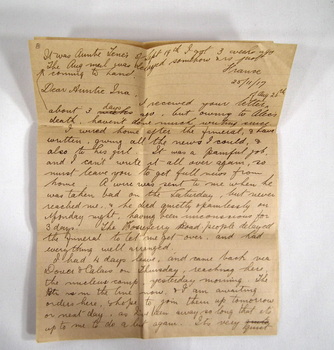 It was Auntie Lena's of Sept 19th I got 3 weeks ago
The Aug mail was delayed somehow & is just
coming to hand.
France
25/11/17
Dear Auntie Ina,
Aug 25th
I received your letter
about 3 days ago, but owing to
death, haven't done much writing since.
I wired home after the funeral, & have
written, giving all the news I could, &
also to his girl. It was a painful job,
and I can't write it all over again, so
must leave you to get full news from
home. A wire was sent to me when he
was taken bad on the Saturday, but never
reached me, & he died quietly & painlessly on
Monday night, having been unconscious for
3 days. The Rosebery Road people delayed
the funeral to let me get over, and had
everything well arranged.
I had 4 days leave, and came back via
Dover & Calais on Thursday, reaching here,
the nucleus camp, yesterday morning. The
is in the line now, & I am awaiting
orders here, & hope to join them up tomorrow
or next day, as I've been away so long that it's
up to me to do a bit again. It's very